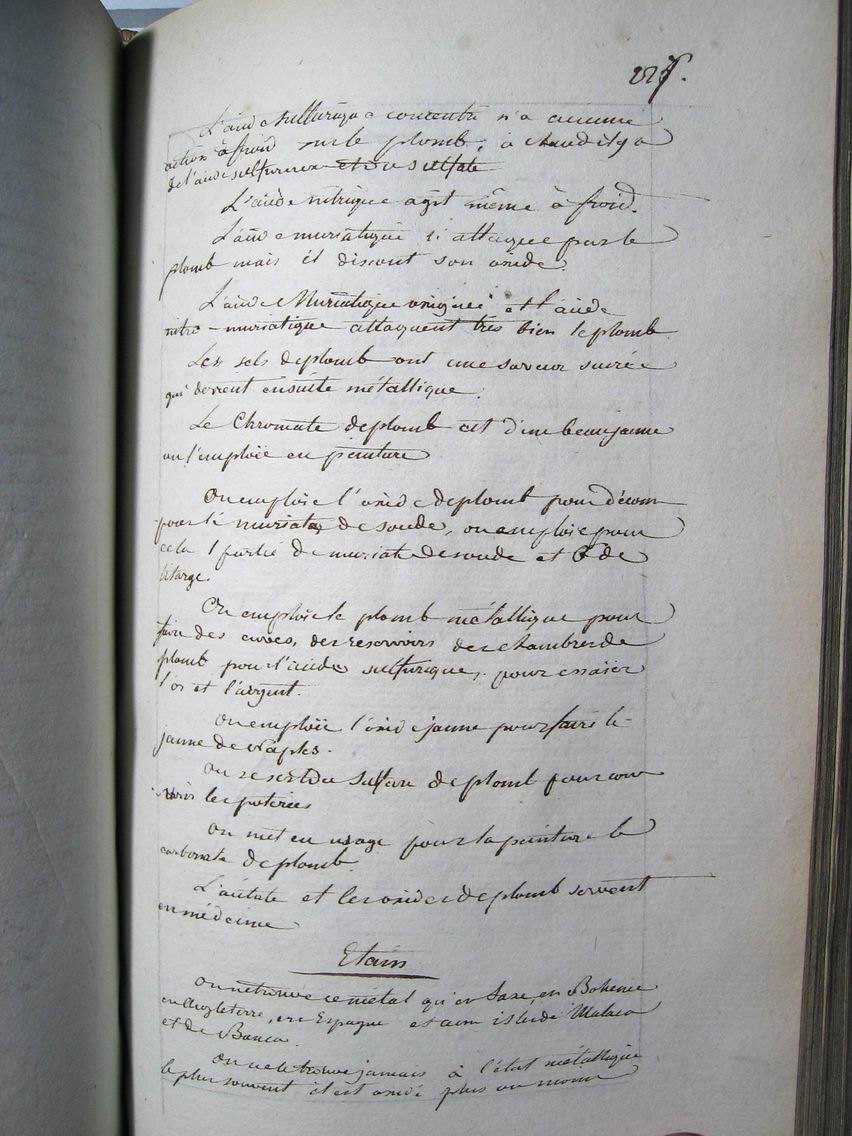 L'acide sulfurique concentré n'a aucune
action à froid sur le plomb, à chaud il y a
de l'acide sulfureux et du sulfate
L'acide nitrique agit même à froid.
L'acide muriatique n'attaque pas le
plomb mais il dissout son oxide.
L'acide Muriatique oxigéné et l'acide
nitro-muriatique attaquent très bien le plomb.
Les sels de plomb ont une saveur sucrée
qui devient ensuite métallique.
Le Chromate de plomb est d'un beau jaune
on l'emploie en peinture
On emploie l'oxide de plomb pour décom
poser le muriate de soude, on emploie pour
cela 1 partie de muriate de soude et 6 de
litarge.
On emploie le plomb métallique pour
faire des cuves, des reservoirs des chambres de
plomb pour l'acide sulfurique, pour essaier
l'or et l'argent.
On emploie l'oxide jaune pour faire le
jaune de Naples.
On se sert du sulfure de plomb pour cou
vrir les poteries
On met en usage pour la peinture le
carbonate de plomb.
L'acétate et les oxides de plomb servent
en médecine
Etain
On ne trouve ce métal qu'en Saxe, en Bohemie
en Angleterre, en Espagne et aux isles de Malaca
et de Banca.
On ne le trouve jamais à l'état métallique
le plus souvent il est oxidé plus ou moins